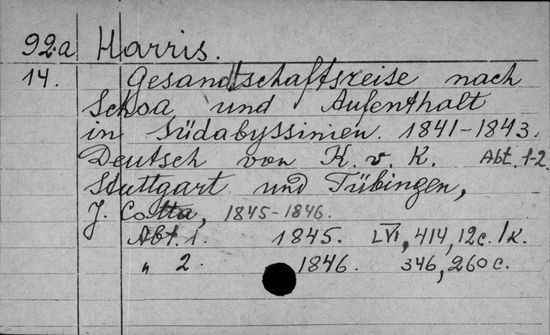 92.a Harris.
14. Gesandtschaftsreise nach
Schoa und Aufenthalt
in Südabyssinien. 1841-1843.
Deutsch von K. v. K. Abt. 1-2.
Stuttgart und Tübingen,
J. Cotta, 1845-1846.
Abt. 1. 1845. LVI, 414, 12 c. 1 к.
„ 2. 1846. 346, 260 c.